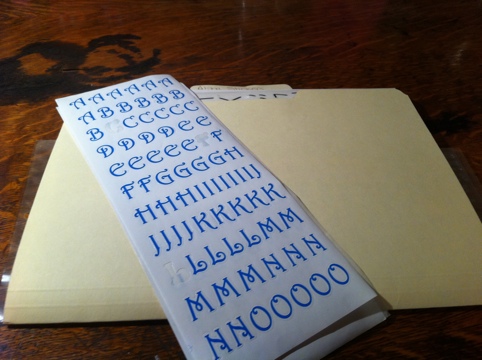 AAAAAA
ABBBBB
B CCCCC
DDDDEE
EEEEE F
FFGGGGH
HHHIIIIIIJ
JJJJKKKKK
LLLLMM
MMMNNN
NNOOOOO